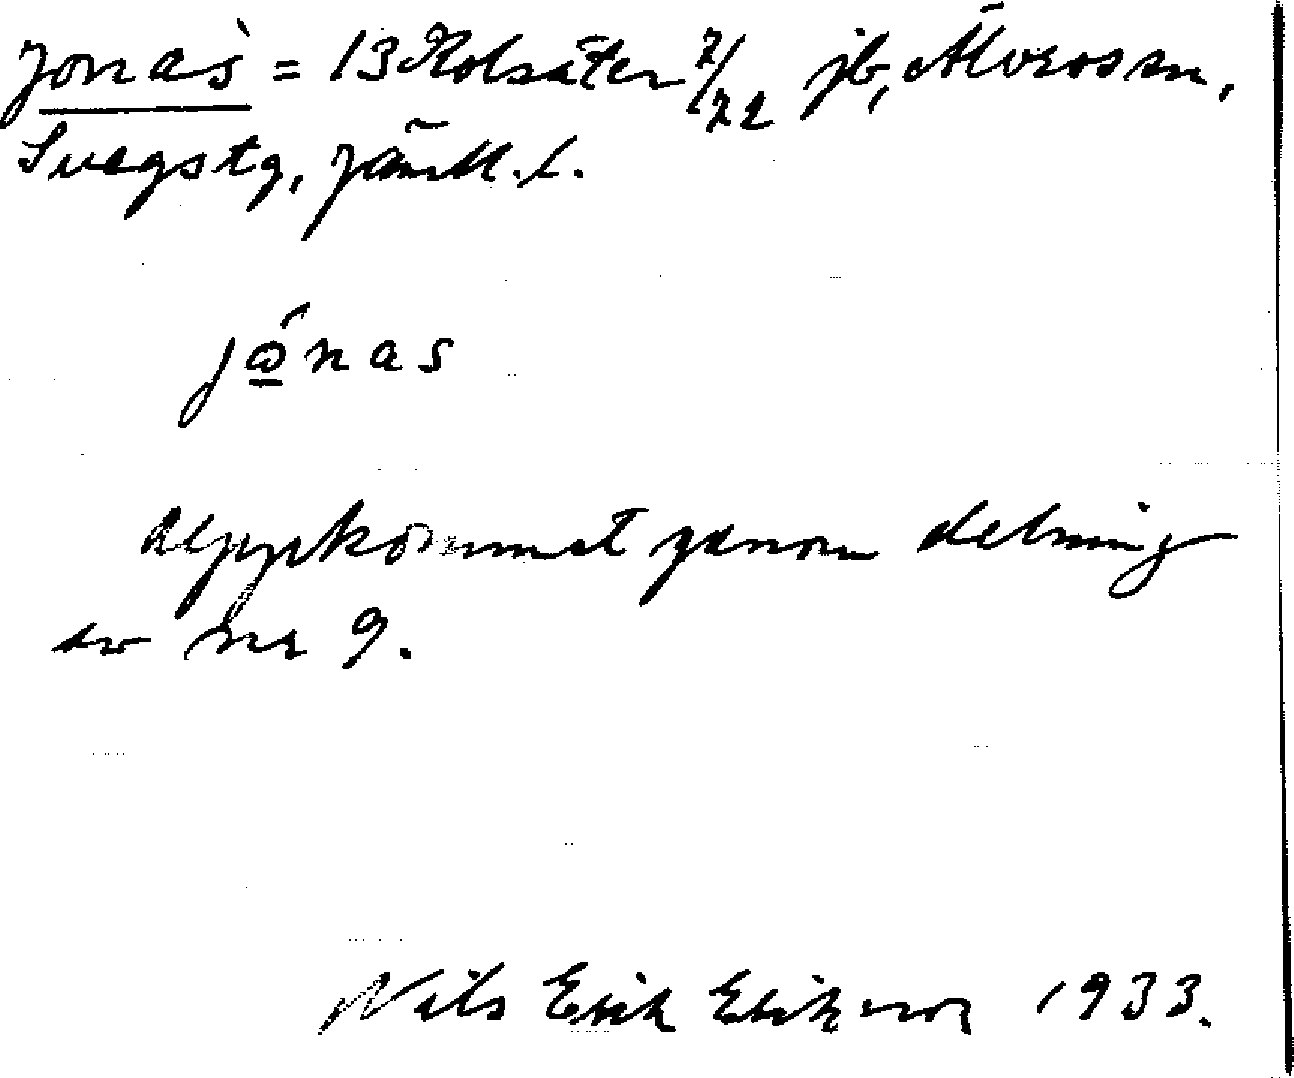 Jonas = 13 Kolsäter 7/72 jb, Älvros sn,
Svegs tg, Jämtl. l.
jó̲nas
Uppkommet genom delning
av nr 9.
Nils Erik Eriksson 1933.